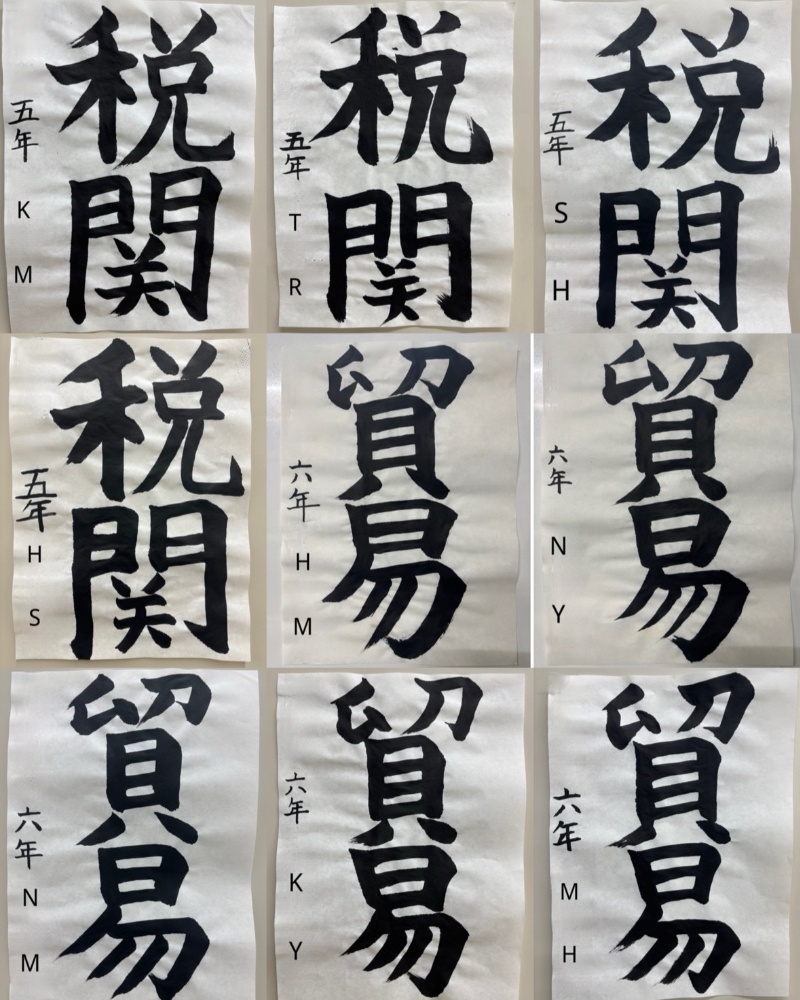 税関
五年
K M
税関
五年
T R
税関
五年
S H
税関
五年
H S
貿易
六年
H M
貿易
六年
N Y
貿易
六年
N M
貿易
六年
K Y
貿易
六年
M H